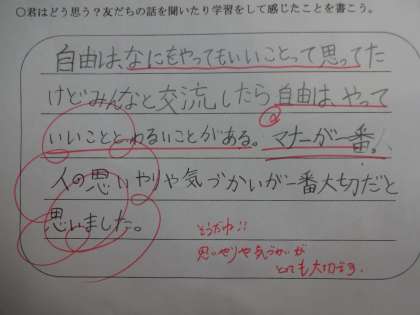 ○君はどう思う?友だちの話を聞いたり学習をして感じたことを書こう。
自由は、なにをやってもいいことって思ってた
けどみんなと交流したら自由は、やって
いいこととわるいことがある。マナーが一番。
人の思いやりや気づかいが一番大切だと
思いました。
そうだね!!
思いやりや気づかいが
とても大切です。